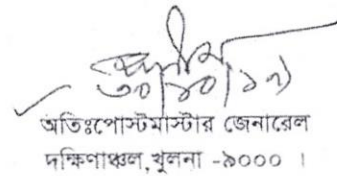 ৩০/১০/১৭
অতিঃপোস্টমাস্টার জেনারেল
দক্ষিণাঞ্চল, খুলনা -৯০০০ ।